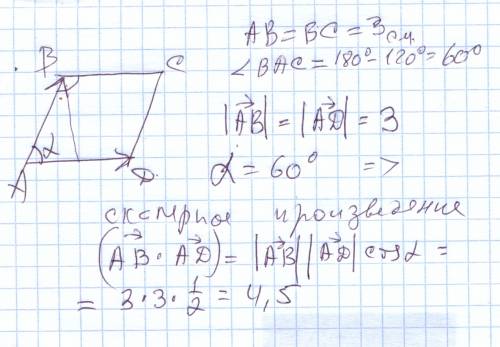 AB = BC = 3 см.
∠BAC = 180° − 120° = 60°
B C
A α D
|AB| = |AD| = 3
α = 60° =>
скалярное произведение
(AB · AD) = |AB| |AD| cos α =
= 3 · 3 · 1/2 = 4,5